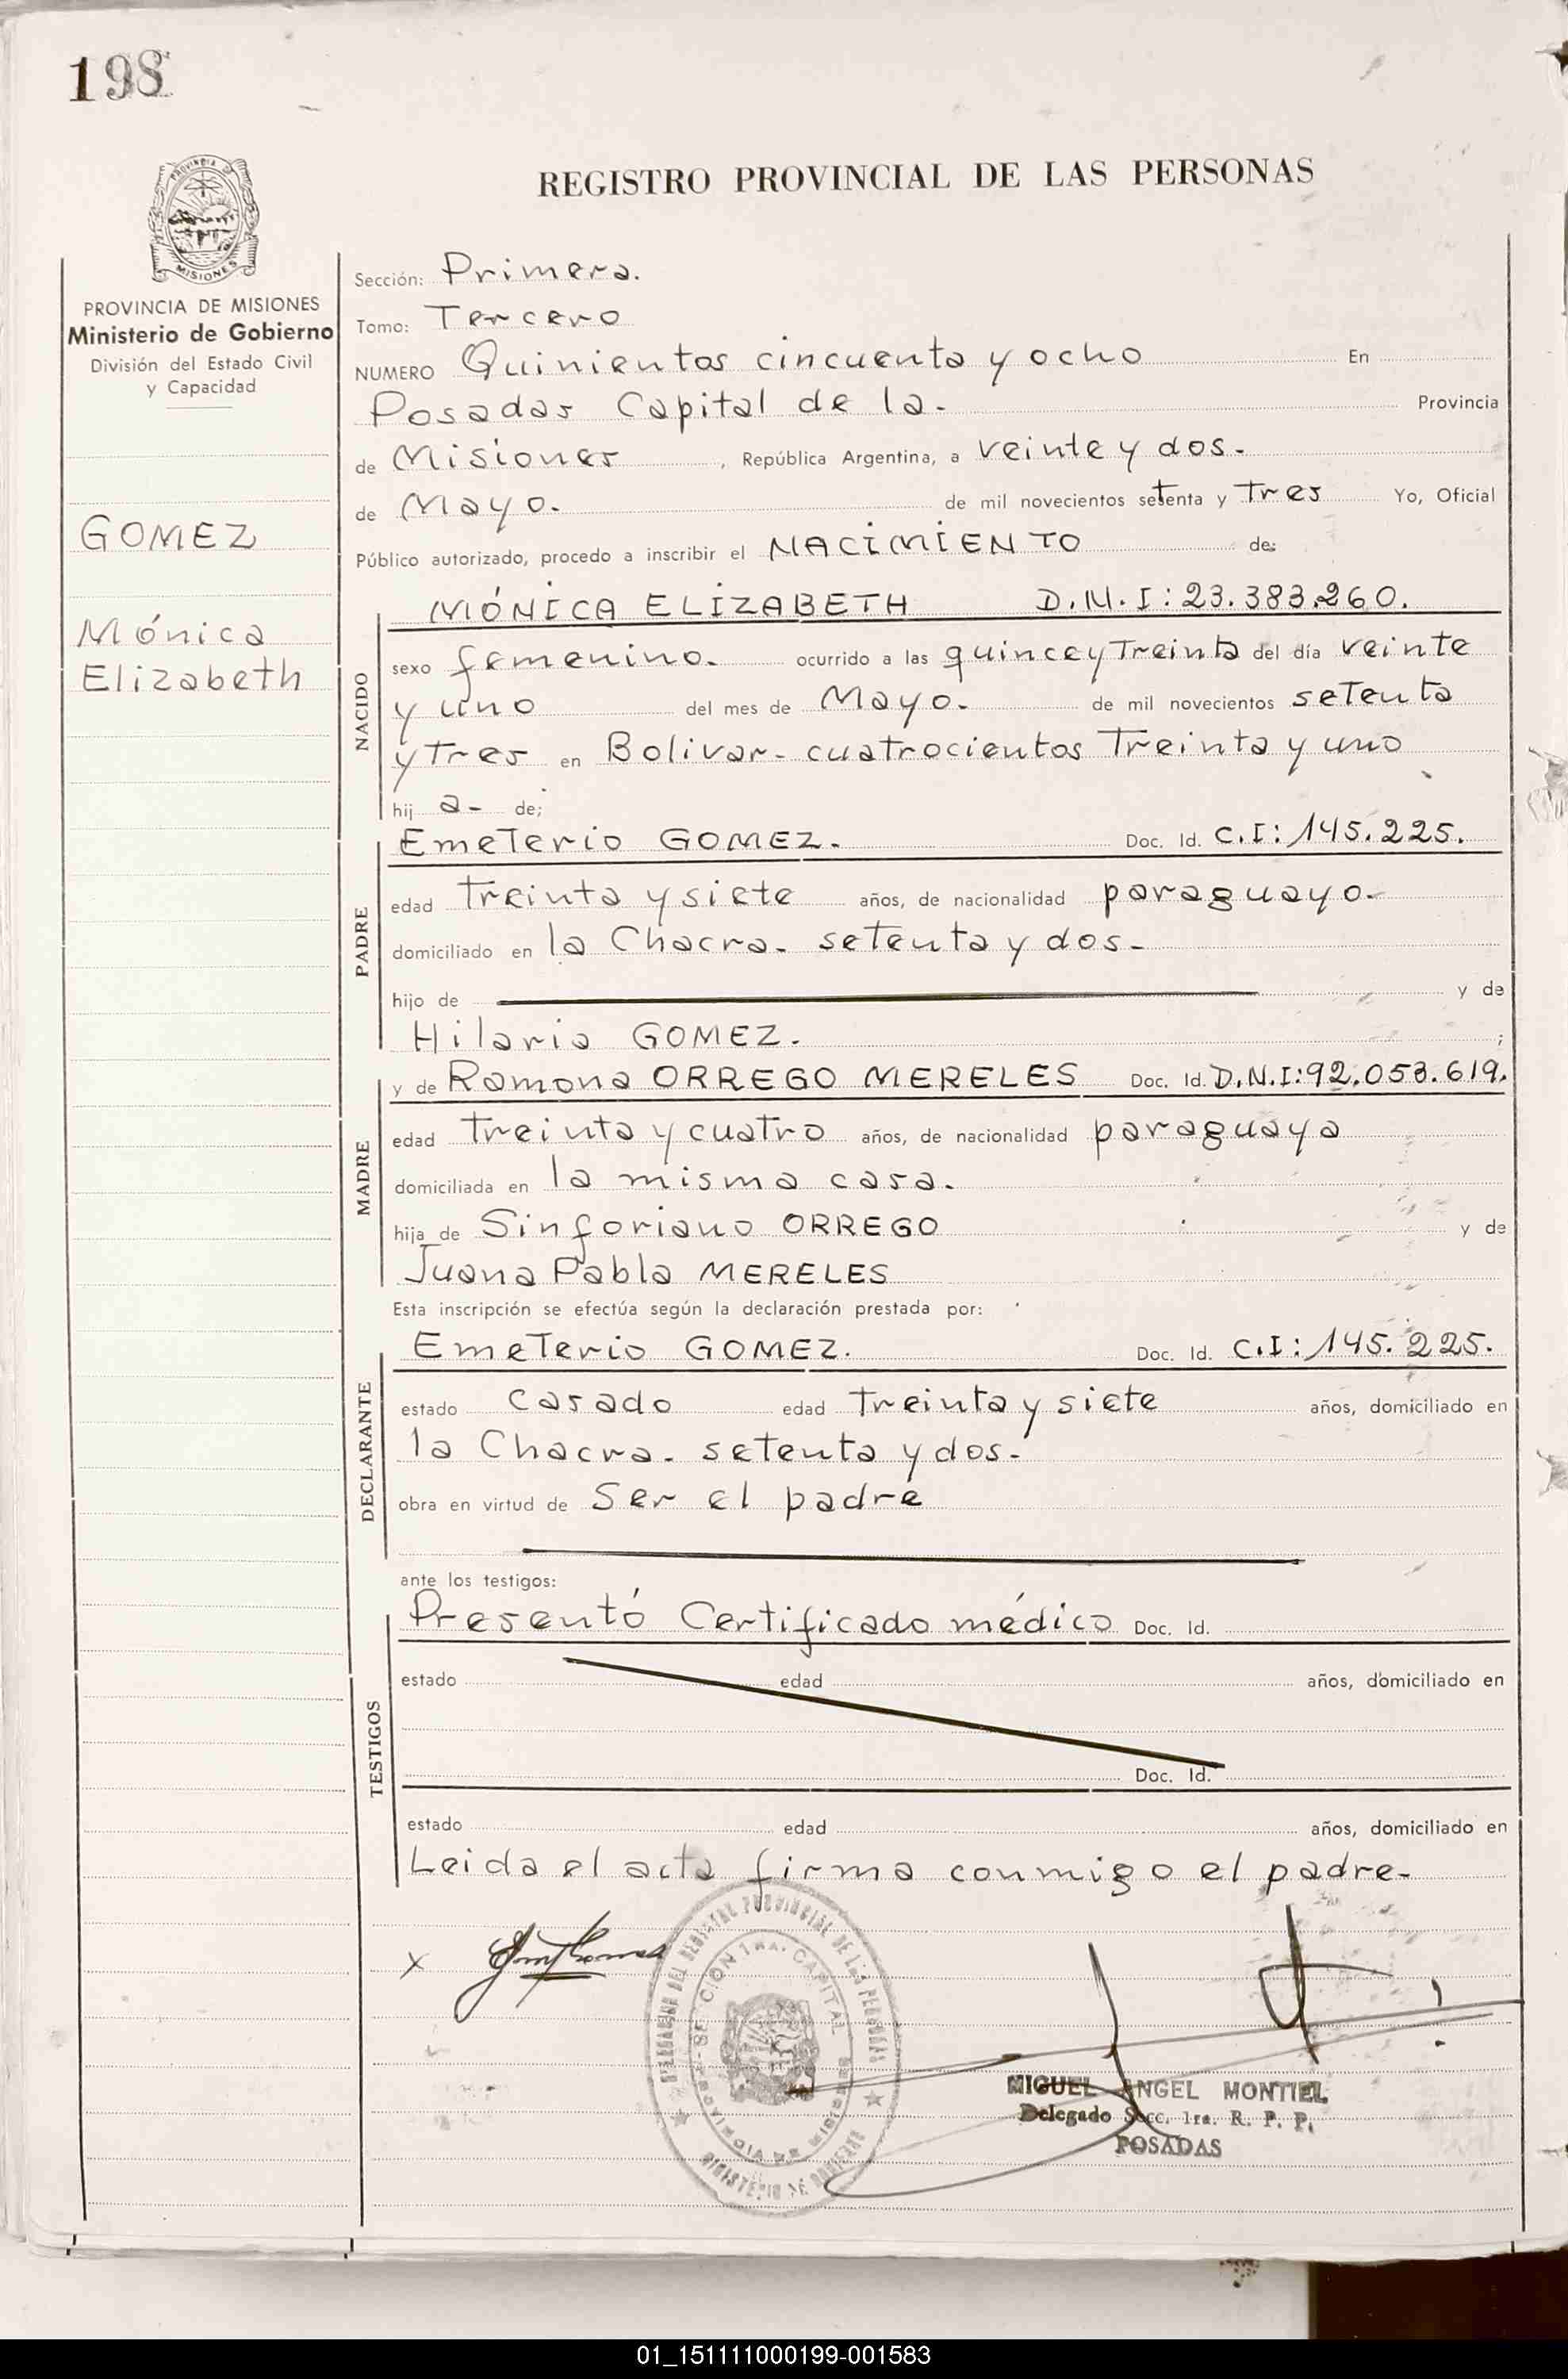 198
PROVINCIA DE
MISIONES
REGISTRO PROVINCIAL DE LAS PERSONAS
PROVINCIA DE MISIONES
Ministerio de Gobierno
División del Estado Civil
y Capacidad
GOMEZ
Mónica
Elizabeth
Sección: Primera.
Tomo: Tercero
NUMERO Quinientos cincuenta y ocho En
Posadas Capital de la. Provincia
de Misiones, República Argentina, a veinte y dos.
de Mayo. de mil novecientos setenta y Tres Yo, Oficial
Público autorizado, procedo a inscribir el NACIMIENTO de:
NACIDO
MÓNICA ELIZABETH D.N.I: 23.383.260.
sexo femenino. ocurrido a las quince y Treinta del día veinte
y uno del mes de Mayo. de mil novecientos setenta
y Tres en Bolivar- cuatrocientos Treinta y uno
hij a- de;
PADRE
Emeterio GOMEZ. Doc. Id. C.I: 145.225.
edad Treinta y siete años, de nacionalidad paraguayo-
domiciliado en la Chacra. setenta y dos-
hijo de y de
Hilaria GOMEZ. ;
MADRE
y de Ramona ORREGO MERELES Doc. Id. D.N.I: 92.053.619.
edad Treinta y cuatro años, de nacionalidad paraguaya
domiciliada en la misma casa.
hija de Sinforiano ORREGO y de
Juana Pabla MERELES
Esta inscripción se efectúa según la declaración prestada por:
DECLARANTE
Emeterio GOMEZ. Doc. Id. C.I: 145.225.
estado casado edad Treinta y siete años, domiciliado en
la Chacra. setenta y dos-
obra en virtud de Ser el padre
ante los testigos:
TESTIGOS
Presentó Certificado médico Doc. Id.
estado edad años, domiciliado en
Doc. Id.
estado edad años, domiciliado en
Leida el acta firma conmigo el padre-
x
SECCION 1RA. CAPITAL
PROVINCIA DE MISIONES
MINISTERIO DE GOBIERNO
MIGUEL ANGEL MONTIEL
Delegado Secc. 1ra. R. P. P.
POSADAS
01_151111000199-001583